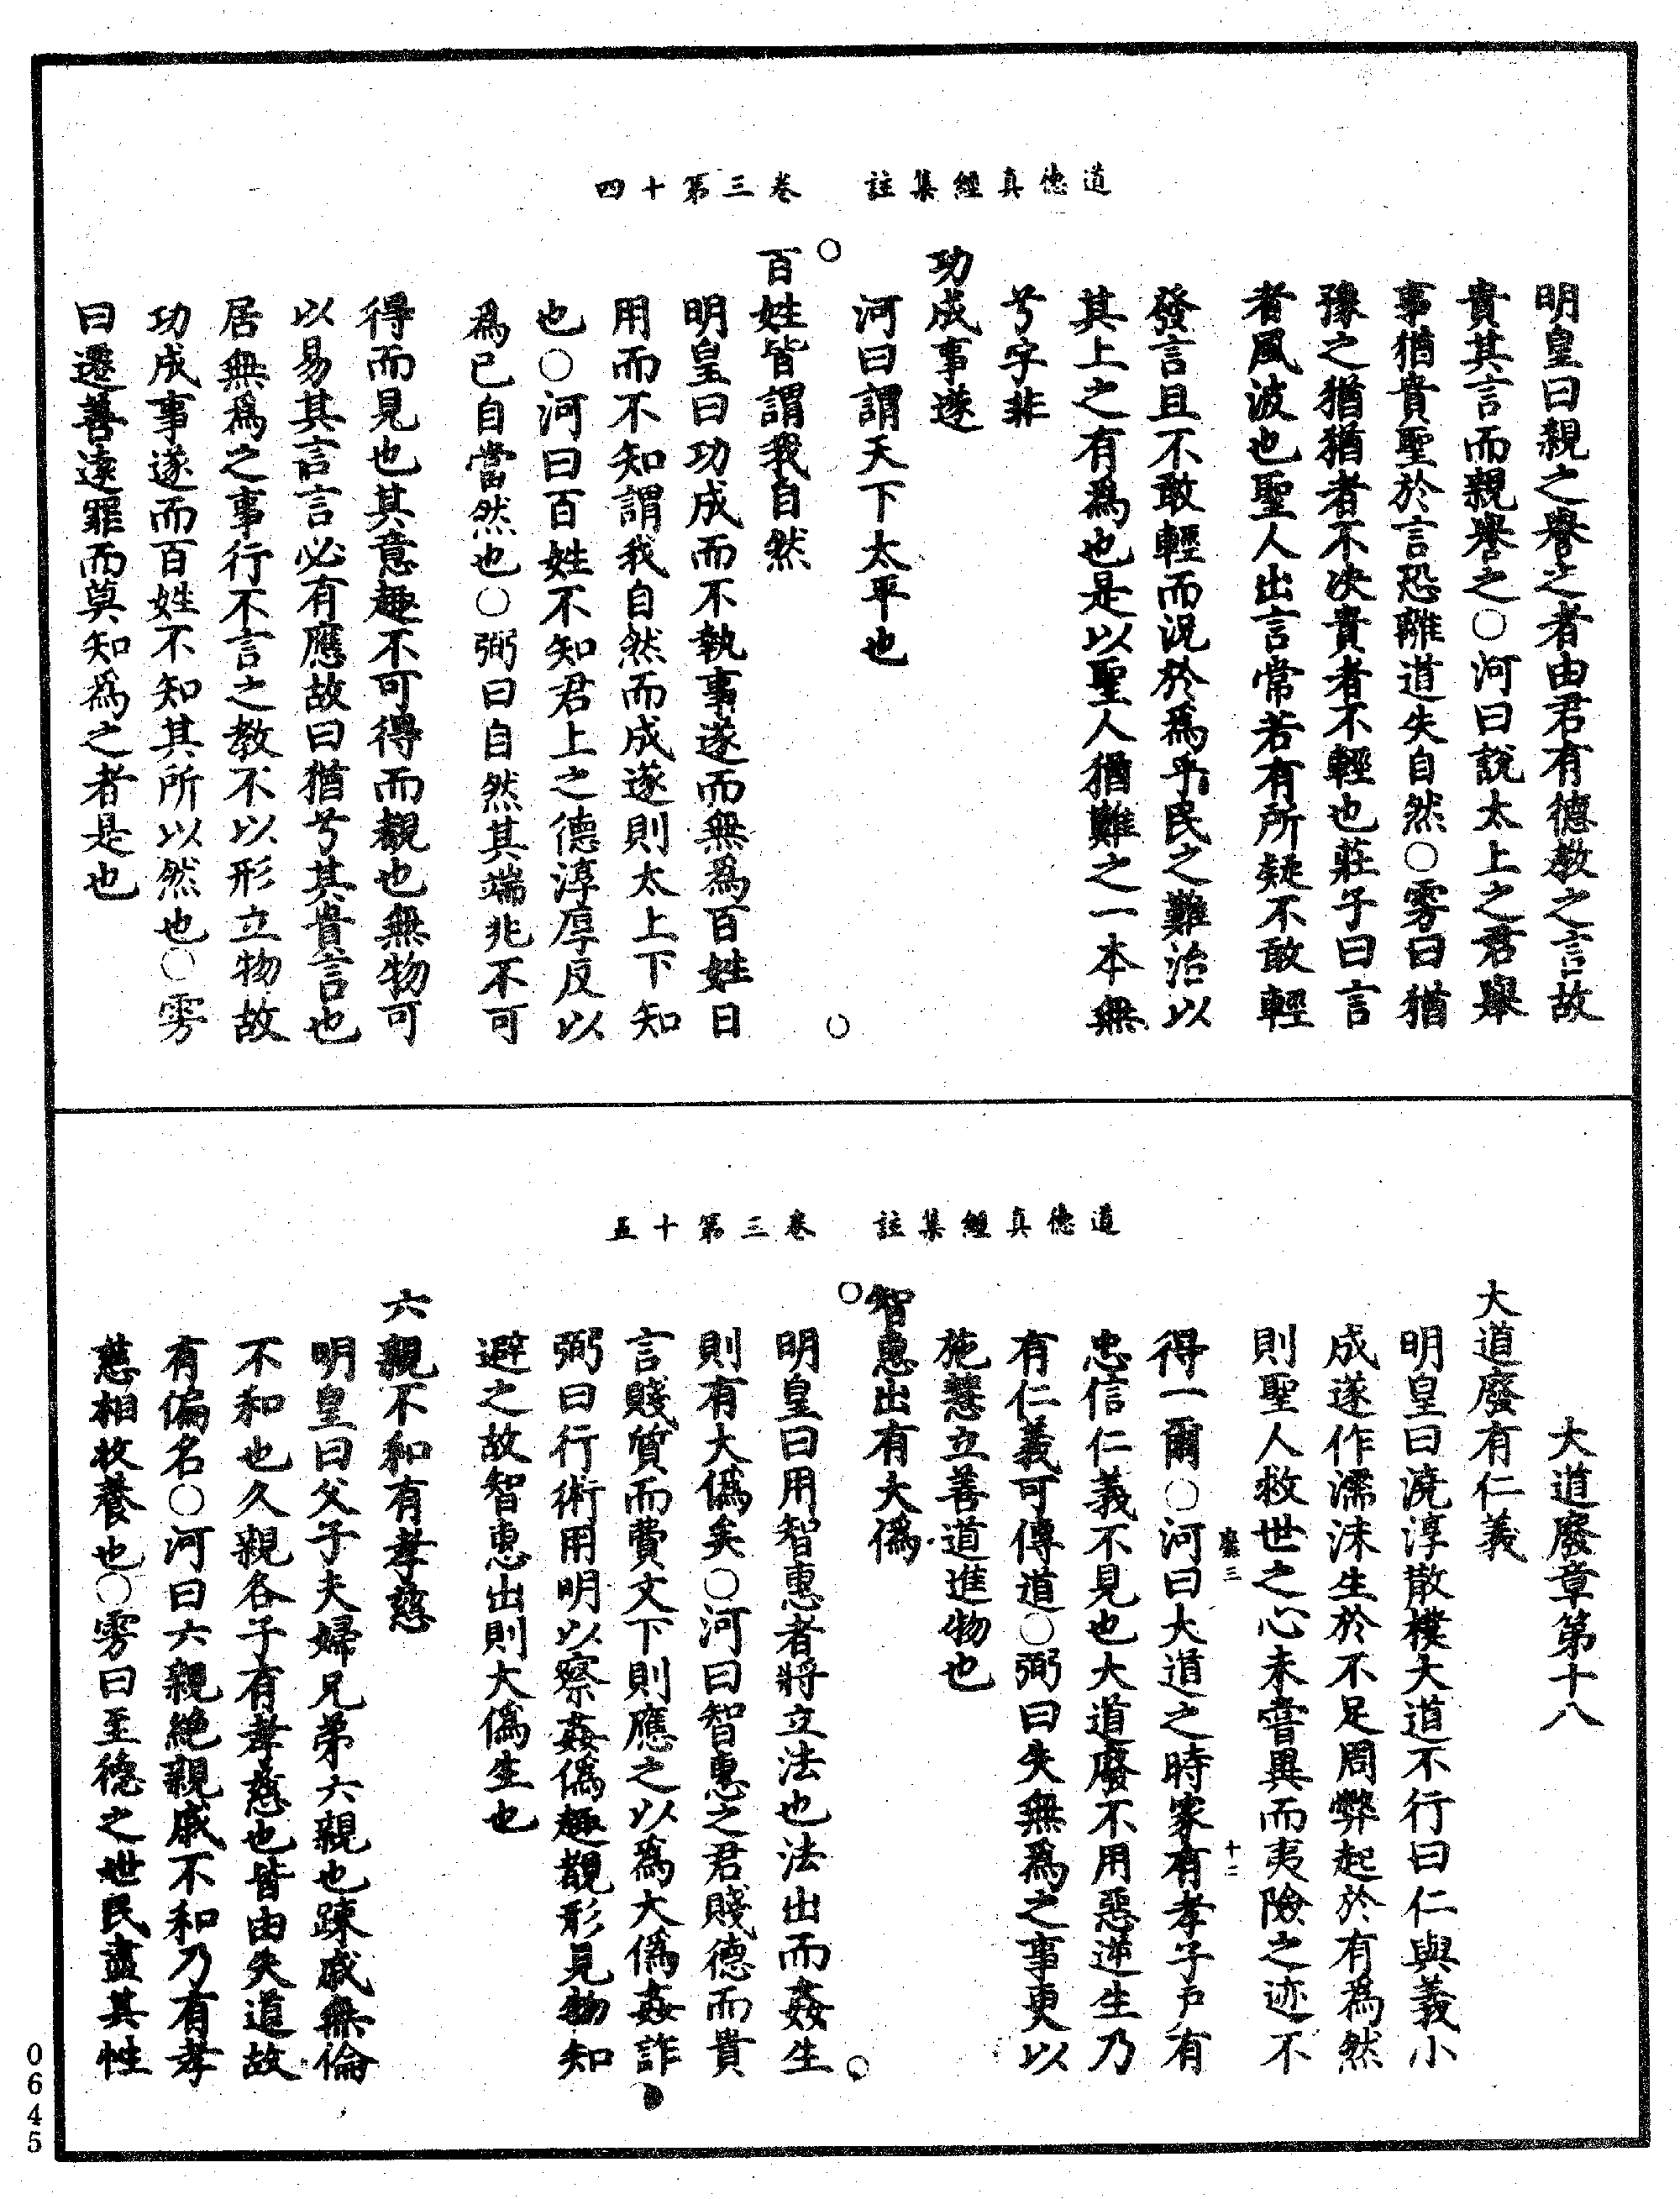 道德真經集註　卷三第十四
明皇曰親之譽之者由君有德教之言故
貴其言而親譽之○河曰說太上之君舉
事猶貴聖於言恐離道失自然○雱曰猶
豫之猶猶者不决貴者不輕也莊子曰言
者風波也聖人出言常若有所疑不敢輕
發言且不敢輕而況於爲乎民之難治以
其上之有爲也是以聖人猶難之一本無
兮字非
功成事遂
河曰謂天下太平也
百姓皆謂我自然
明皇曰功成而不執事遂而無爲百姓日
用而不知謂我自然而成遂則太上下知
也○河曰百姓不知君上之德淳厚反以
爲已自當然也○弼曰自然其端兆不可
得而見也其意趣不可得而覩也無物可
以易其言言必有應故曰猶兮其貴言也
居無爲之事行不言之教不以形立物故
功成事遂而百姓不知其所以然也○雱
曰遷善遠罪而莫知爲之者是也
道德真經集註　卷三第十五
大道廢章第十八
大道廢有仁義
明皇曰澆淳散樸大道不行曰仁與義小
成遂作濡沫生於不足周弊起於有爲然
則聖人救世之心未甞異而夷險之迹不
得一爾○河曰大道之時家有孝子戶有
忠信仁義不見也大道廢不用惡逆生乃
有仁義可傳道○弼曰失無爲之事更以
施慧立善道進物也
智惠出有大僞
明皇曰用智惠者將立法也法出而姦生
則有大僞矣○河曰智惠之君賤德而貴
言賤質而費文下則應之以爲大僞姦詐
弼曰行術用明以察姦僞趣覩形見物知
避之故智惠出則大僞生也
六親不和有孝慈
明皇曰父子夫婦兄弟六親也踈戚無倫
不和也久親各子有孝慈也皆由失道故
有偏名○河曰六親絶親戚不和乃有孝
慈相牧養也○雱曰至德之世民盡其性
0645